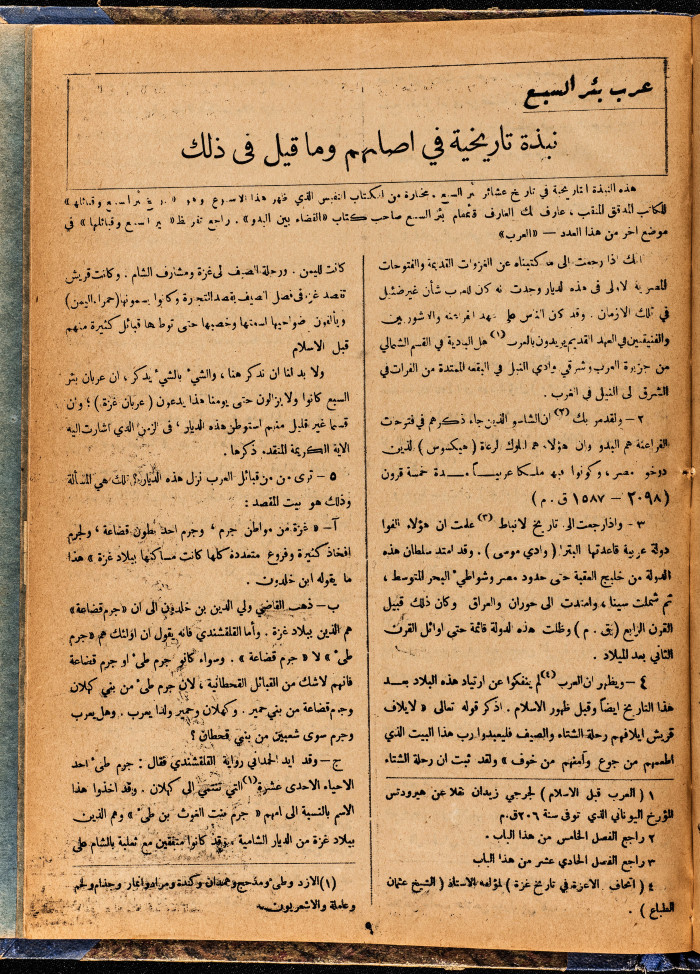 عرب بئر السبع
نبذة تاريخية في اصلهم وما قيل في ذلك
هذه النبذة التاريخية في تاريخ عشائر بئر السبع . مختارة من الكتاب النفيس الذي ظهر هذا الاسبوع وهو « تاريخ بئر السبع وقبائلها »
للكاتب المدقق المنقب ، عارف بك العارف قائمقام بئر السبع صاحب كتاب «القضاء بين البدو» . راجع تقريظ « بئر السبع وقبائلها » في
موضع اخر من هذا العدد — «العرب»
انك اذا رجعت الى ما كتبناه عن الغزوات القديمة والفتوحات
المصرية الاولى في هذه الديار وجدت انه كان للعرب شأن غير ضئيل
في تلك الازمان . وقد كان الناس على عهد الفراعنة والاشوريين
والفنيقيين في العهد القديم يريدون بالعرب (١) اهل البادية في القسم الشمالي
من جزيرة العرب وشرقي وادي النيل في البقعة الممتدة من الفرات في
الشرق الى النيل في الغرب .
٢ – ولقد مر بك (٢) ان الشاسو الذين جاء ذكرهم في فتوحات
الفراعنة هم البدو وان هؤلاء هم الملوك الرعاة ( هيكسوس ) الذين
دوخو مصر ، وكونوا فيها ملكا عربيا مدة خمسة قرون
(٢٠٩٨ – ١٥٨٧ ق . م )
٣ – واذا رجعت الى تاريخ الانباط (٣) علمت ان هؤلاء الفوا
دولة عربية قاعدتها البترا ( وادي موسى ) . وقد امتد سلطان هذه
الدولة من خليج العقبة حتى حدود مصر وشواطيء البحر المتوسط ،
ثم شملت سينا ، وامتدت الى حوران والعراق وكان ذلك قبيل
القرن الرابع (ق . م ) وظلت هذه الدولة قائمة حتى اوائل القرن
الثاني بعد الميلاد .
٤ – ويظهر ان العرب (٤) لم ينفكوا عن ارتياد هذه البلاد بعد
هذا التاريخ ايضاً وقبل ظهور الاسلام . اذكر قوله تعالى « لايلاف
قريش ايلافهم رحلة الشتاء والصيف فليعبدوا رب هذا البيت الذي
اطعمهم من جوع وآمنهم من خوف » ولقد ثبت ان رحلة الشتاء
١ ( العرب قبل الاسلام ) لجرجي زيدان نقلا عن هيرودتس
المؤرخ اليوناني الذي توفى سنة ٢٠٦ ق.م
٢ راجع الفصل الخامس من هذا الباب .
٣ راجع الفصل الحادي عشر من هذا الباب
٤ ( اتحاف الاعزة في تاريخ غزة ) لمؤلفه الاستاذ ( الشيخ عثمان
الطباع ) .
كانت لليمن . ورحلة الصيف لى غزة ومشارف الشام . وكانت قريش
تقصد غزة في فصل الصيف بقصد التجارة وكانوا يسمونها (حمراء اليمن)
ويألفون ضواحيها لسعتها وخصبها حتى توطنها قبائل كثيرة منهم
قبل الاسلام
ولا بد لنا ان نذكر هنا ، والشيء بالشيء يذكر ، ان عربان بئر
السبع كانوا ولا يزالون حتى يومنا هذا يدعون ( عربان غزة ) ؛ وان
قسما غير قليل منهم استوطن هذه الديار ، في الزمن الذي اشارت اليه
الاية الكريمة المتقدم ذكرها .
٥ – ترى من من قبائل العرب نزل هذه الديار ؟ تلك هي المسألة
وذلك هو بيت المقصد :
آ– « غزة من مواطن جرم ، وجرم احد بطون قضاعة ، ولجرم
افخاذ كثيرة وفروع متعددة كلها كانت مساكنها ببلاد غزة » هذا
ما يقوله ابن خلدون .
ب– ذهب القاضي ولي الدين بن خلدون الى ان «جرم قضاعة»
هم الذين ببلاد غزة . وأما القلقشندي فانه يقول ان اولئك هم «جرم
طيء » لا « جرم قضاعة » . وسواء كانوا جرم طيء او جرم قضاعة
فانهم لاشك من القبائل القحطانية ، لان جرم طيء من بني كهلان
وجرم قضاعة من بني حمير . وكهلان وحمير ولدا يعرب . وهل يعرب
وجرم سوى شعبين من بني قحطان ؟
ج– وقد ايد الحمداني رواية القلقشندي فقال : جرم طيء احد
الاحياء الاحدى عشرة (١) التي تنتمي الى كهلان . وقد اخذوا هذا
الاسم بالنسبة الى امهم « جرم بنت الغوث بن طيء » وهم الذين
ببلاد غزة من الديار الشامية . وقد كانوا متفقين مع ثعلبة بالشام على
(١) الازد وطيء ومذحج وهمدان وكندة ومراد وانمار وجذام ولخم
وعاملة والاشعريون
٩